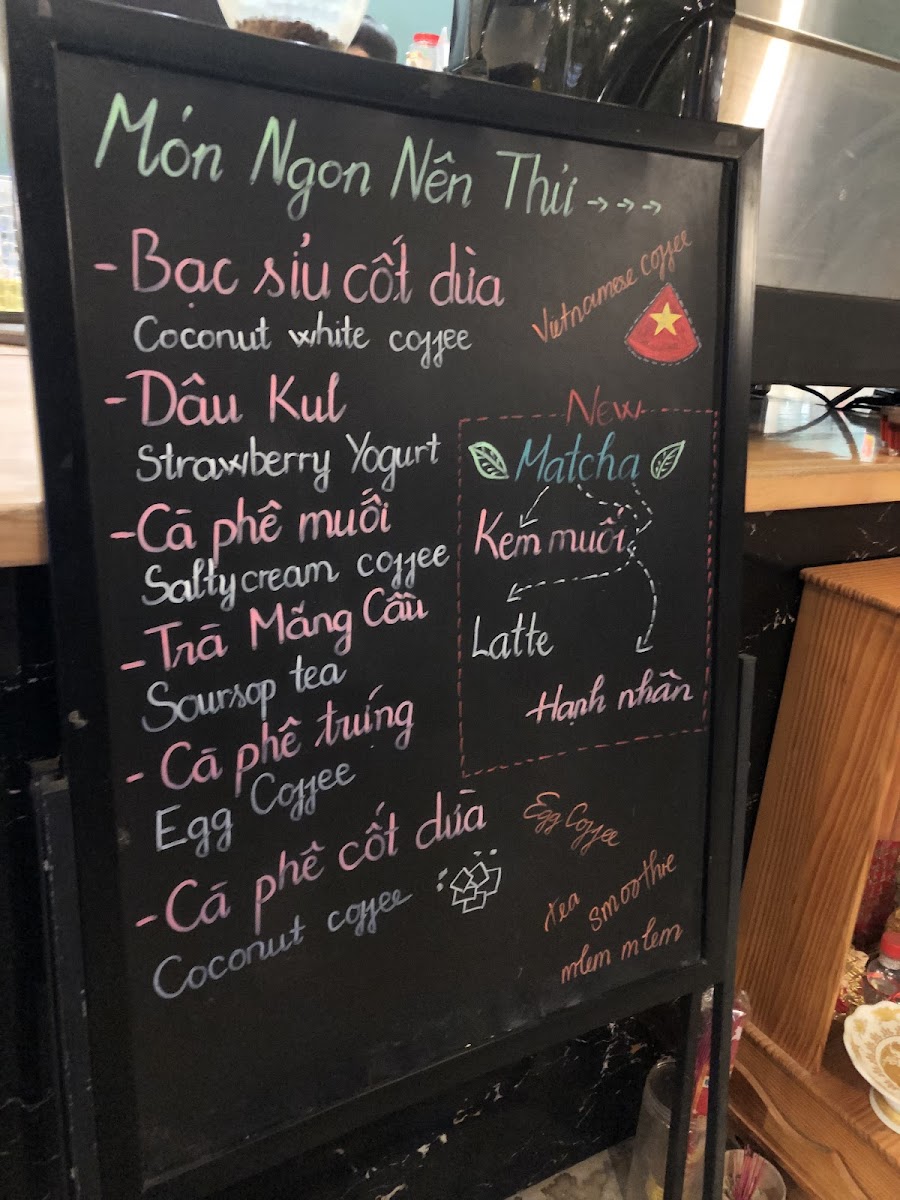 Món Ngon Nên Thử →→→
- Bạc sỉu cốt dừa
Coconut white coffee
- Dâu Kul
Strawberry Yogurt
- Cà phê muối
Salty cream coffee
- Trà Mãng Cầu
Soursop tea
- Cà phê trứng
Egg Coffee
- Cà phê cốt dừa
Coconut coffee
Vietnamese coffee
New
Matcha
Kem muối
Latte
Hạnh nhân
Egg Coffee
tea smoothie
mlem mlem